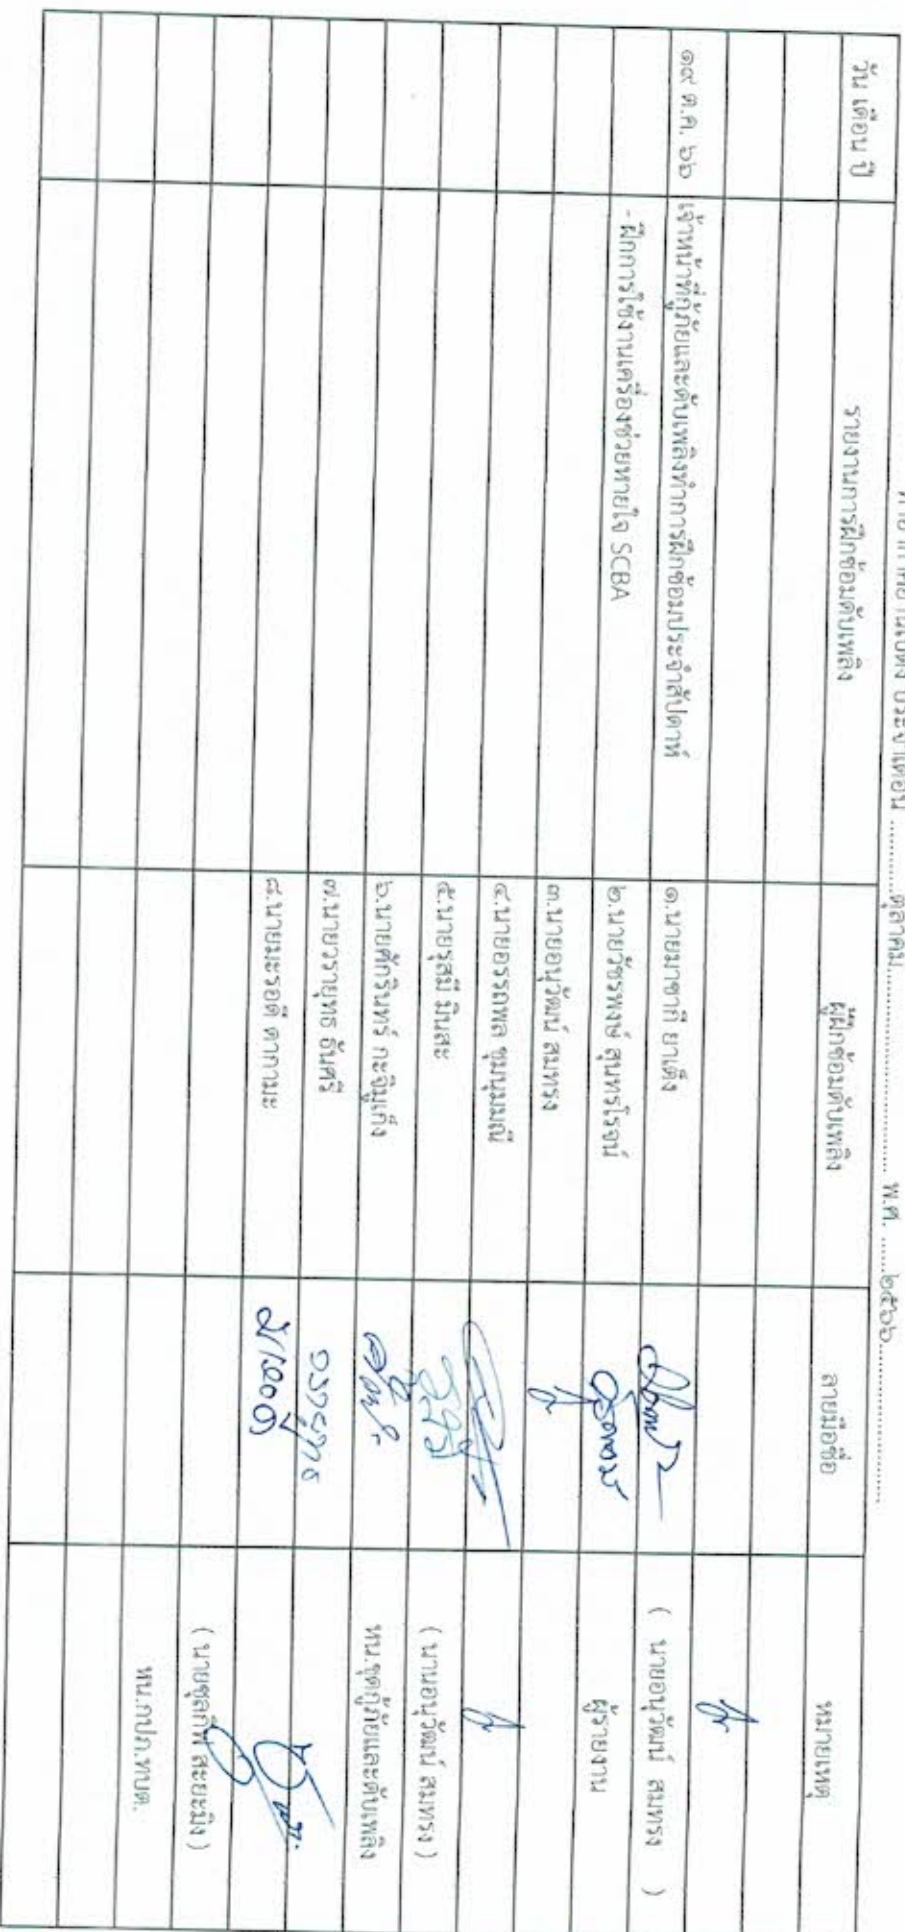 ประจำเดือน ..........ตุลาคม.......................... พ.ศ. ......๒๕๖๖..........................
วัน เดือน ปี รายงานการฝึกซ้อมดับเพลิง ผู้ฝึกซ้อมดับเพลิง ลายมือชื่อ หมายเหตุ
๑๙ ต.ค. ๖๖ เจ้าหน้าที่กู้ภัยและดับเพลิงทำการฝึกซ้อมประจำสัปดาห์ ๑.นายมาซากี ยาเด็ง ( นายอนุวัฒน์ สมทรง )
- ฝึกการใช้งานเครื่องช่วยหายใจ SCBA ๒.นายวัชรพงษ์ สุนทรโรจน์ ผู้รายงาน
๓.นายอนุวัฒน์ สมทรง
๔.นายอรรถพล ชุมนุมมณี
๕.นายรุสมี มินสะ ( นานอนุวัฒน์ สมทรง )
๖.นายศักรินทร์ กะจิมูแก้ง หน.ชุดกู้ภัยและดับเพลิง
๗.นายวรายุทธ อินศรี วรายุทธ
๘.นายมะรอดี ดากามะ มะรอดี
( นายชุลกิฟ สะยะมิง )
หน.กปภ.ทบต.